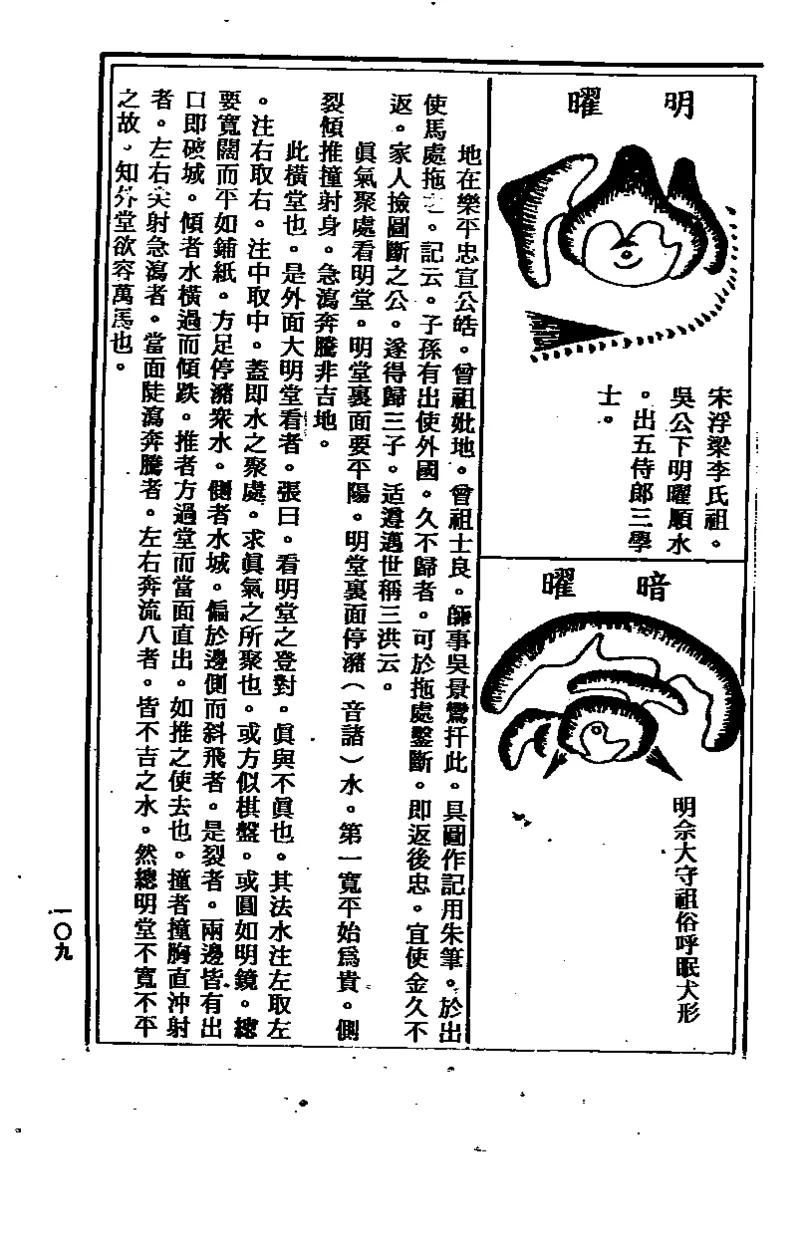 明曜
宋浮梁李氏祖。
吳公下明曜順水
。出五侍郎三學
士。
暗曜
明佘大守祖俗呼眠犬形
地在樂平忠宣公皓。曾祖妣地。曾祖士良。師事吳景鸞扦此。具圖作記用朱筆。於出
使馬處拖之。記云。子孫有出使外國。久不歸者。可於拖處鑿斷。即返後忠。宜使金久不
返。家人撿圖斷之公。遂得歸三子。适遵邁世稱三洪云。
眞氣聚處看明堂。明堂裏面要平陽。明堂裏面停瀦(音諸)水。第一寬平始爲貴。側
裂傾推撞射身。急瀉奔騰非吉地。
此橫堂也。是外面大明堂看者。張曰。看明堂之登對。眞與不眞也。其法水注左取左
。注右取右。注中取中。蓋即水之聚處。求眞氣之所聚也。或方似棋盤。或圓如明鏡。總
要寬闊而平如鋪紙。方足停瀦衆水。側者水城。偏於邊側而斜飛者。是裂者。兩邊皆有出
口即破城。傾者水橫過而傾跌。推者方過堂而當面直出。如推之使去也。撞者撞胸直沖射
者。左右尖射急瀉者。當面陡瀉奔騰者。左右奔流八者。皆不吉之水。然總明堂不寬不平
之故。知外堂欲容萬馬也。
一〇九